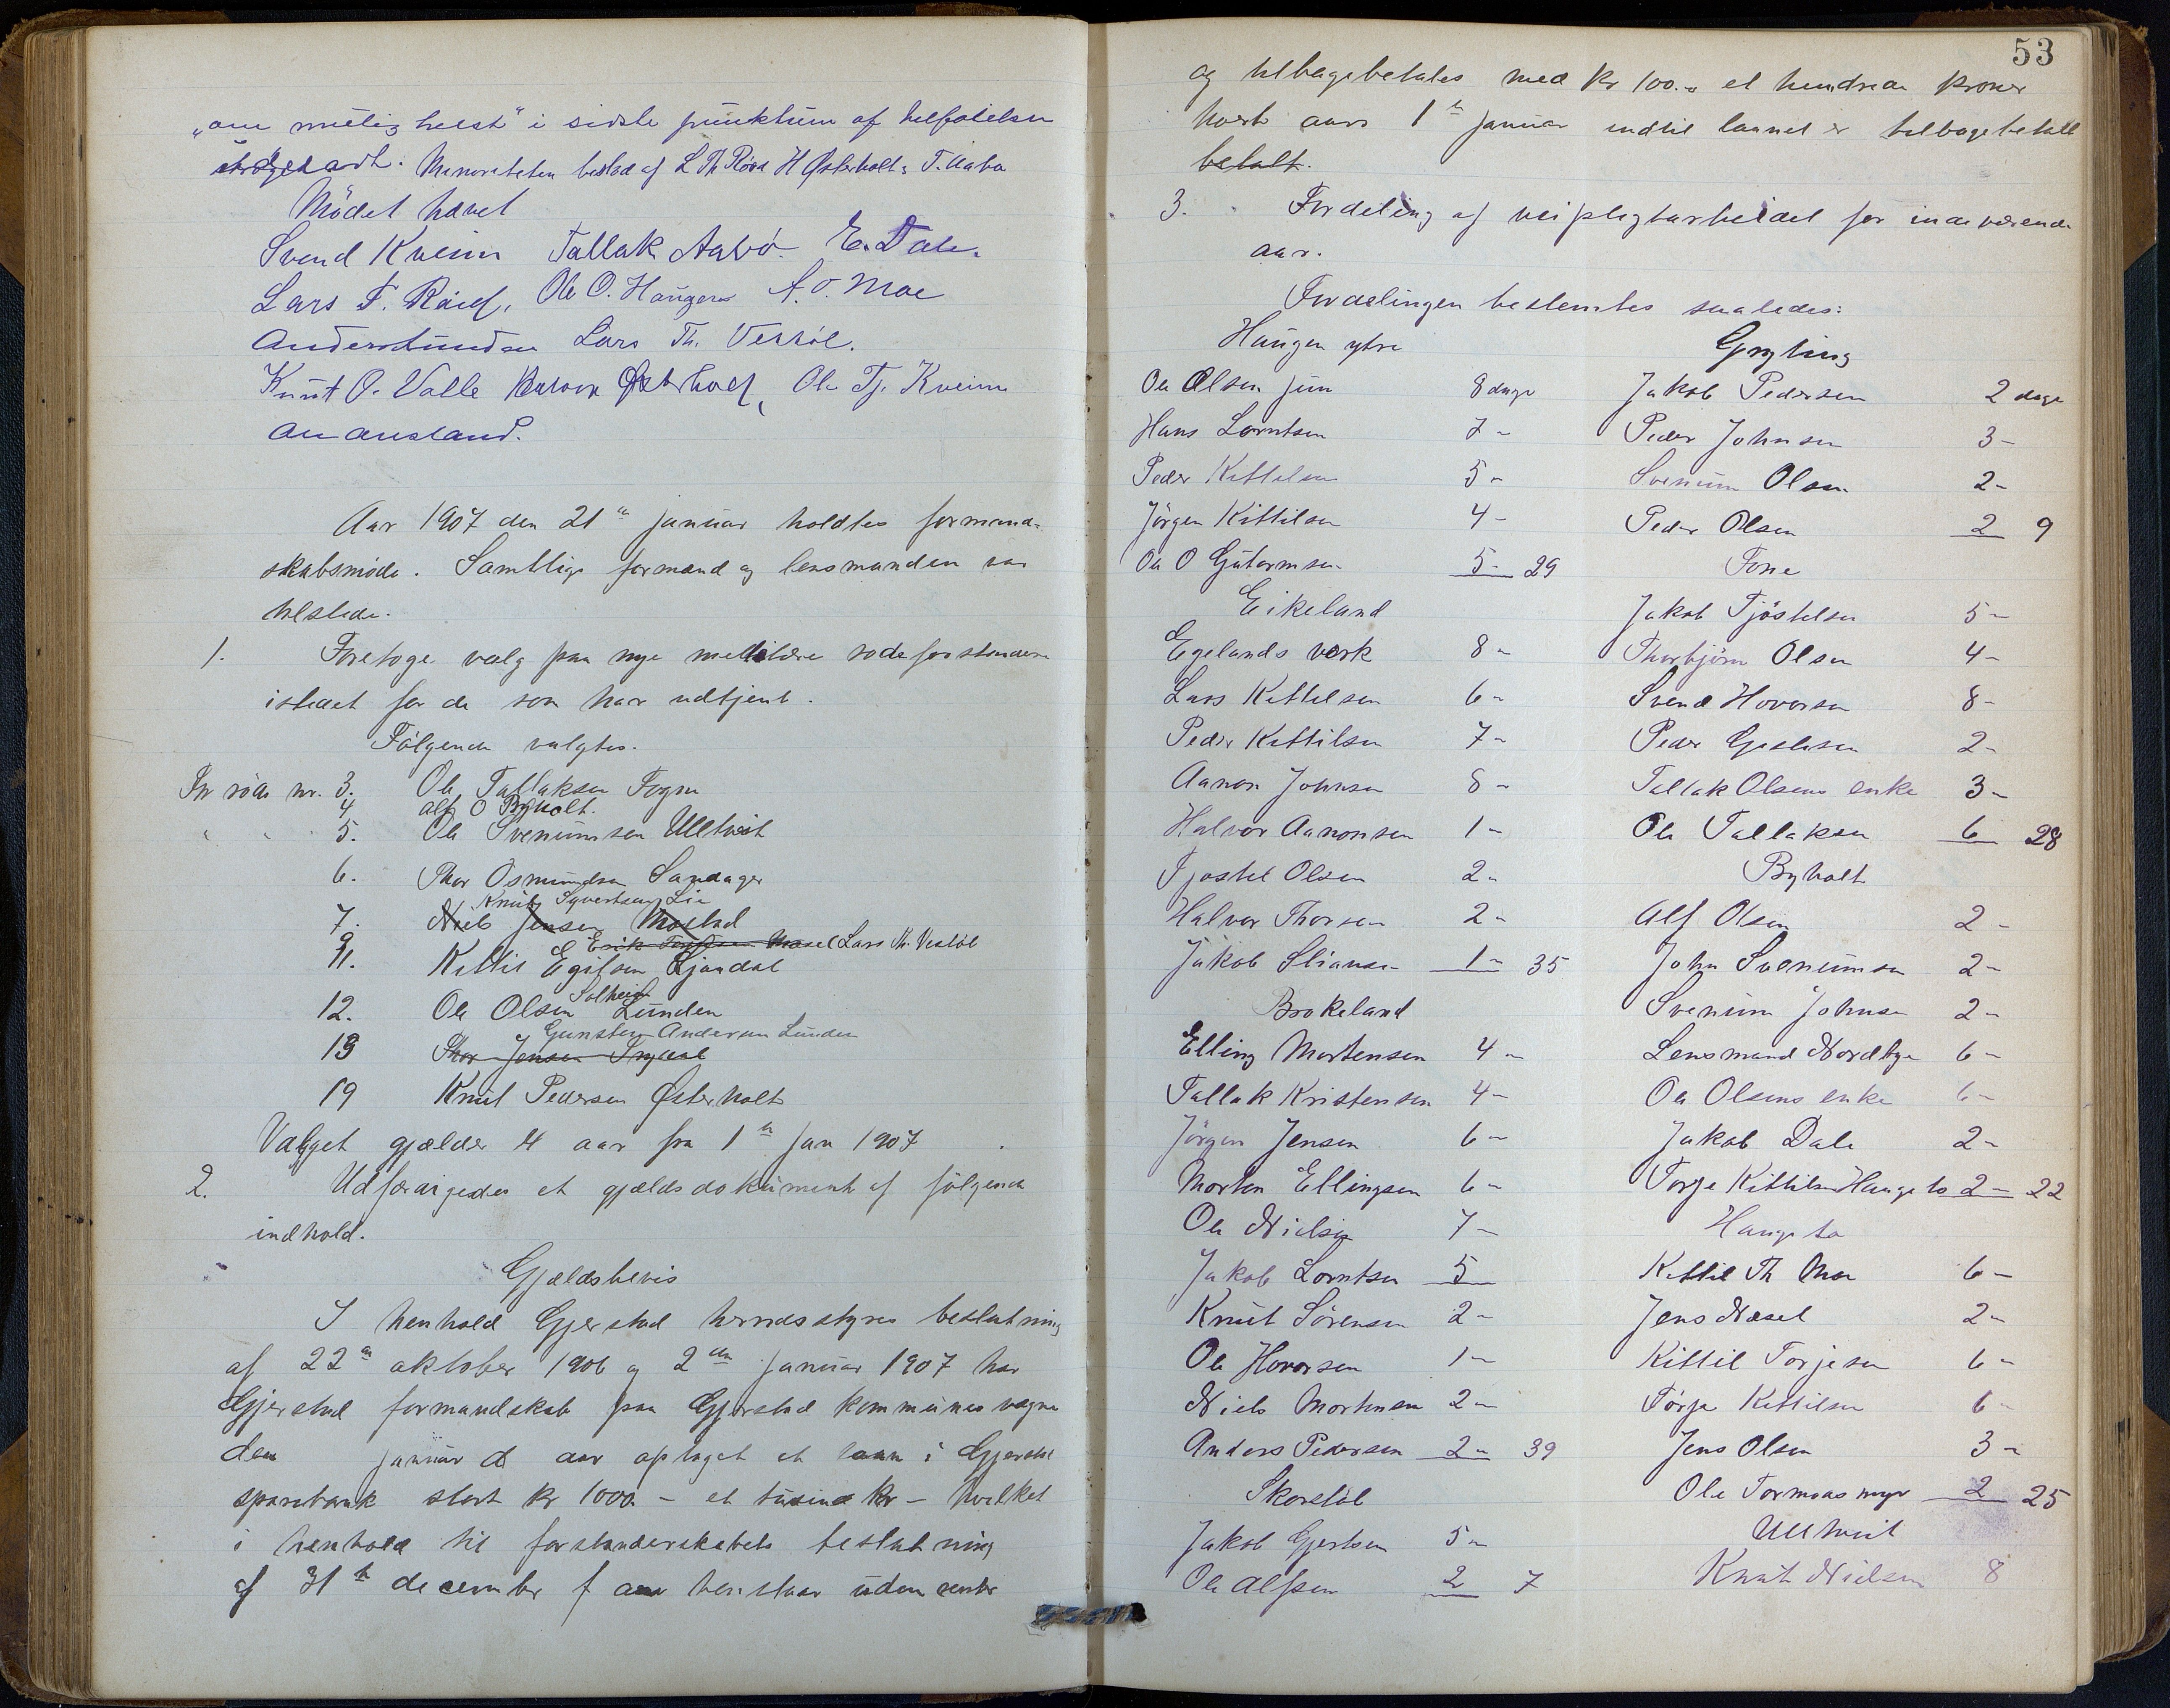 „om mulig helst" i sidste punktum af tilføielsen
strøget. Minoriteten bestod af L Th Røed H Østerholt & T. Aabø
Mödet hævet
Svend Kveim Tallak Aabö. E. Dale.
Lars T. Röed, Ole O. Haugen A. O. Moe
Lars Th. Vestöl.
Knut O. Valle Halvor Østerholt, Ole Tj. Kveim
Aar 1907 den 21de januar holdtes formand-
skabsmöde. Samtlige formænd og lensmanden var
tilstede.
1. Foretoge valg paa nye militære rodeforstandere
istedet for de som har udtjent.
Fölgende valgtes.
For rode nr. 3. Ole Tallaksen Fogne
4 Alf O Byholt.
" " " 5. Ole Svenumsen Ulltveit
6. Thor Osmundsen Sandager
Knut Syvertsen Lie
7. Niels Jensen Mostad
9 Erik Masel Lars Th. Vestöl
11. Kittil Egilsen Ljøndal
Solheim
12. Ole Olsen Lunden
Gunsten Andersen Lunden
13 Thor Jensen Trydal
19 Knut Pedersen Østerholt
Valget gjælder 4 aar fra 1ste jan 1907
2. Udfærdigedes et gjældsdokument af fölgende
indhold.
Gjældsbevis
I henhold Gjerstad herredsstyres beslutning
af 22de oktober 1906 og 2den januar 1907 har
Gjerstad formandskab paa Gjerstad kommunes vegne
den januar d aar optaget et laan i Gjerstad
sparebank stort kr 1000 - et tusind kr - hvilket
i henhold til forstanderskabets beslutning
af 31te december f aar henstaar uden renter
53
og tilbagebetales med kr 100.- et hundrede kroner
hvert aars 1ste januar indtil laanet er tilbagebetalt
betalt.
3. Fordeling af veipligtarbeidet for indeværende
aar.
Fordelingen bestemtes saaledes:
Haugen ytre
Ole Olsen jun 8 dage
Hans Lorntsen 7 -
Peder Kittelsen 5 -
Jörgen Kittilsen 4 -
Ole O Gutormsen 5 - 29
Eikeland
Egelands verk 8 -
Lars Kittelsen 6 -
Peder Kittilsen 7 -
Aanon Johnsen 8 -
Halvor Aanonsen 1 -
Tjostel Olsen 2 -
Halvor Thorsen 2 -
Jakob Stiansen 1 - 35
Brokeland
Elling Mortensen 4 -
Tallak Kristensen 4 -
Jörgen Jensen 6 -
Morten Ellingsen 6 -
Ole Nielsen 7 -
Jakob Lorntsen 5
Knut Sörensen 2 -
Ole Hovorsen 1 -
Niels Mortensen 2 -
Anders Pedersen 2 - 39
Skorstöl
Jakob Gjertsen 5 -
Ole Alfsen 2 7
Gryting
Jakob Pedersen 2 dage
Peder Johnsen 3 -
Svenum Olsen 2 -
Peder Olsen 2 9
Fone
Jakob Tjöstelsen 5 -
Thorbjörn Olsen 4 -
Svend Hovorsen 8 -
Peder Gjeruldsen 2 -
Tallak Olsens enke 3 -
Ole Tallaksen 6 28
Byholt
Alf Olsen 2 -
John Svenumsen 2 -
Svenum Johnsen 2 -
Lensmand Nordbye 6 -
Ole Olsens enke 6 -
Jakob Dale 2 -
Torje Kittilsen Haugeto 2 - 22
Haugeto
Kittil Th Moe 6 -
Jens Næsel 2 -
Kittil Torjesen 6 -
Törje Kittilsen 6 -
Jens Olsen 3 -
Ole Tormoas myr 2 25
Ulltveit
Knut Nielsen 8